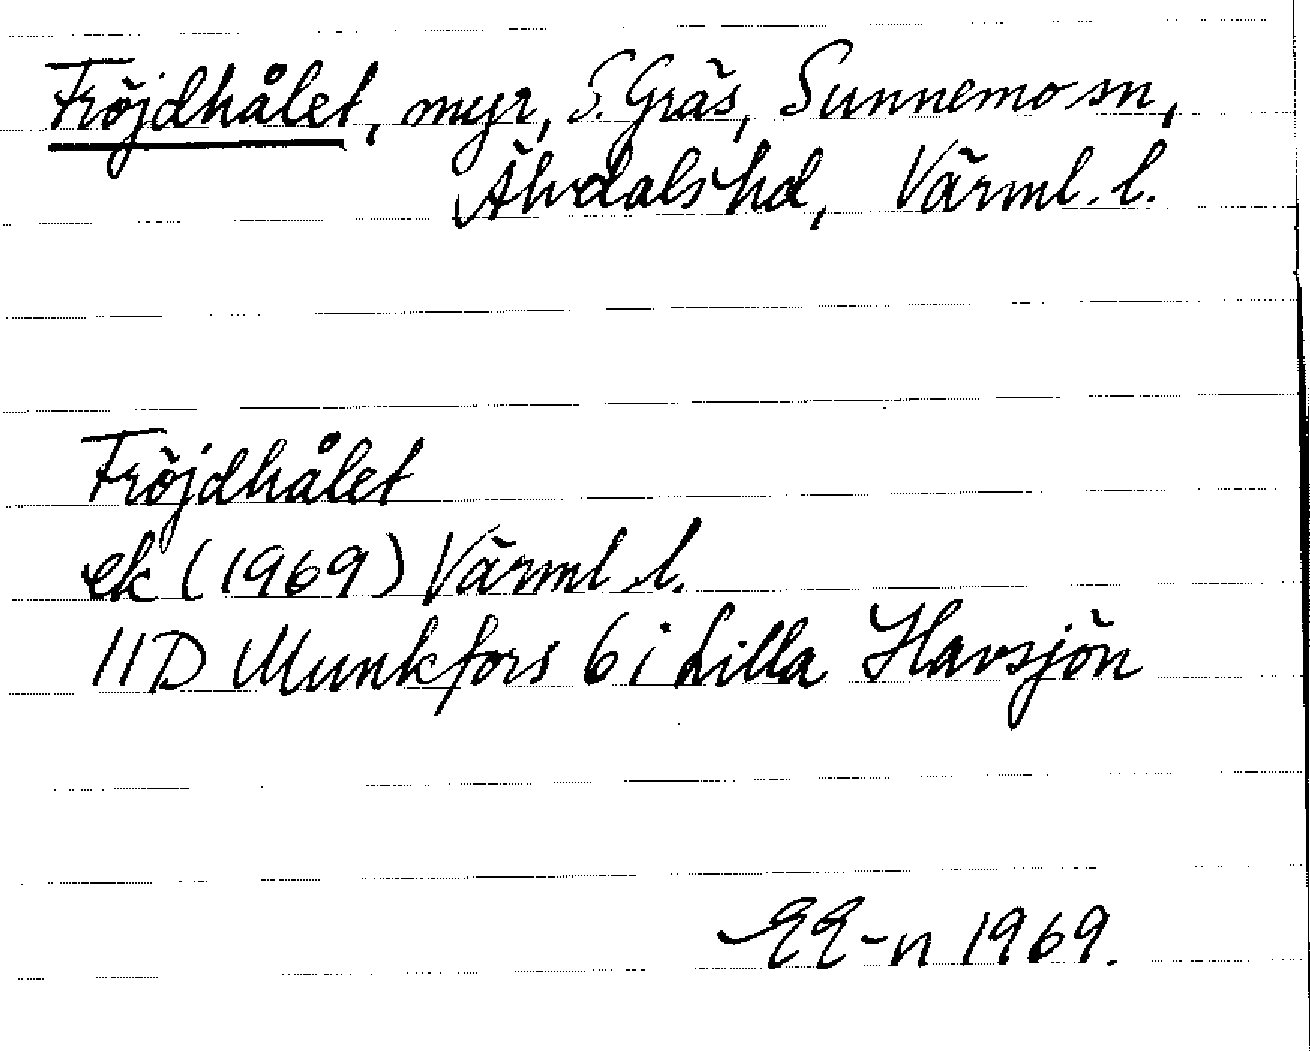 Fröjdhålet, myr, S. Gräs, Sunnemo sn,
Älvdals hd, Värml. l.
Fröjdhålet
ek (1969) Värml. l.
11D Munkfors 6 i Lilla Havsjön
EE-n 1969.